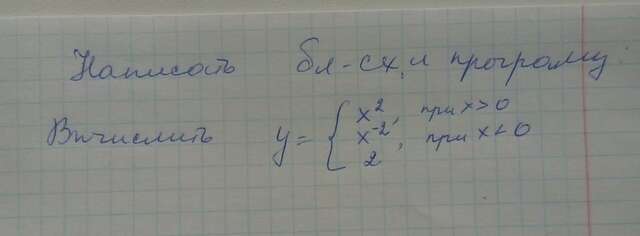 Написать бл-сх. и програму:
Вычислить y = { x², при x > 0
x⁻², при x < 0
2